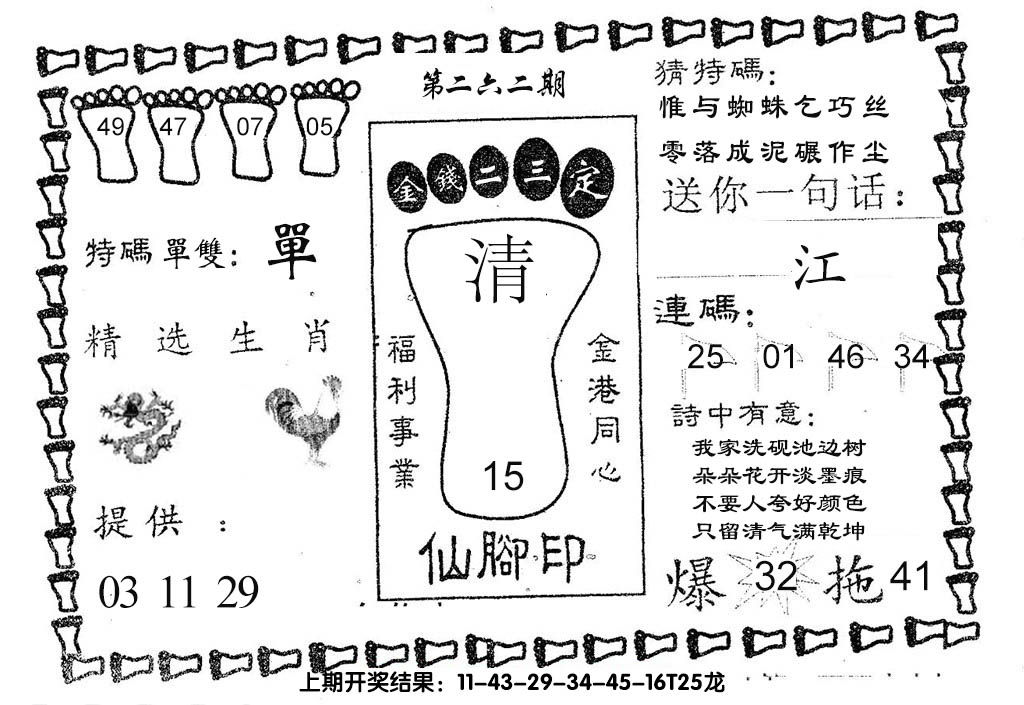 第二六二期
49 47 07 05
特碼單雙：單
精选生肖
提供：
03 11 29
金錢二三定
清
福利事業
金港同心
15
仙腳印
猜特碼：
惟与蜘蛛乞巧丝
零落成泥碾作尘
送你一句话：
江
連碼：
25 01 46 34
詩中有意：
我家洗砚池边树
朵朵花开淡墨痕
不要人夸好颜色
只留清气满乾坤
爆 32 拖 41
上期开奖结果：11-43-29-34-45-16T25龙